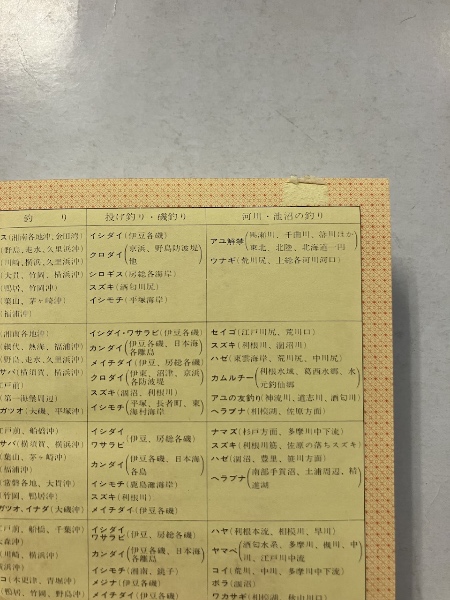 釣 り
投げ釣り・磯釣り
河川・池沼の釣り
ス(湘南各地沖、金田湾)
(野島、走水、久里浜沖)
(川崎、横浜、久里浜沖)
(大貫、竹岡、横浜沖)
(鴨居、竹岡沖)
(葉山、茅ヶ崎沖)
(福浦沖)
イシダイ(伊豆各磯)
クロダイ(京浜、野島防波堤
他)
シロギス(房総各海岸)
スズキ(酒匂川尻)
イシモチ(平塚海岸)
アユ解禁(千曲川、
東北、北陸、北海道一円)
ウナギ(荒川尻、上総各河川河口)
(湘南各地沖)
(網代、熱海、福浦沖)
(野島、走水、久里浜沖)
サバ(横須賀、横浜沖)
江戸前)
(第一海堡周辺)
ガツオ(大磯、平塚沖)
イシダイ・ワサラビ(伊豆各磯)
カンダイ(伊豆各磯、日本海
各離島)
メイチダイ(伊豆、房総各磯)
クロダイ(伊東、沼津、京浜
各防波堤)
スズキ(涸沼、利根川)
イシモチ(平塚、長者町、東
海村海岸)
セイゴ(江戸川尻、荒川口)
スズキ(利根川、涸沼川)
ハゼ(東雲海岸、荒川尻、中川尻)
カムルチー(利根水域、葛西水郷、水
元釣仙郷)
アユの友釣り(神流川、道志川、酒匂川)
ヘラブナ(相模湖、佐原方面)
江戸前、船橋沖)
サバ(横須賀、横浜沖)
(葉山、茅ヶ崎沖)
(福浦沖)
(常磐各地、大貫沖)
(竹岡、鴨居沖)
ガツオ、イナダ(大磯沖)
イシダイ
ワサラビ(伊豆、房総各磯)
カンダイ(伊豆各磯、日本海
各島)
イシモチ(鹿島灘海岸)
スズキ(利根川)
メイチダイ(伊豆各磯)
ナマズ(杉戸方面、多摩川中下流)
スズキ(利根川筋、佐原の落ちスズキ)
ハゼ(涸沼、豊里、笹川方面)
ヘラブナ(南部手賀沼、土浦周辺、精
進湖)
江戸前、船橋、千葉沖)
大森沖)
(川崎、横浜沖)
浜沖)
コ(木更津、青堀沖)
(竹岡、鴨居、野島沖)
イシダイ
ワサラビ(伊豆、房総各磯)
カンダイ(伊豆各磯、日本海
各離島)
イシモチ(湘南、銚子)
メジナ(伊豆各磯)
メイチダイ(伊豆各磯)
ハヤ(利根本流、相模川、早川)
ヤマベ(酒匂水系、多摩川、桂川、中
川、江戸川中流)
コイ(荒川、中川、多摩川中下流)
ボラ(涸沼)
ワカサギ(相模湖、秋山川口)